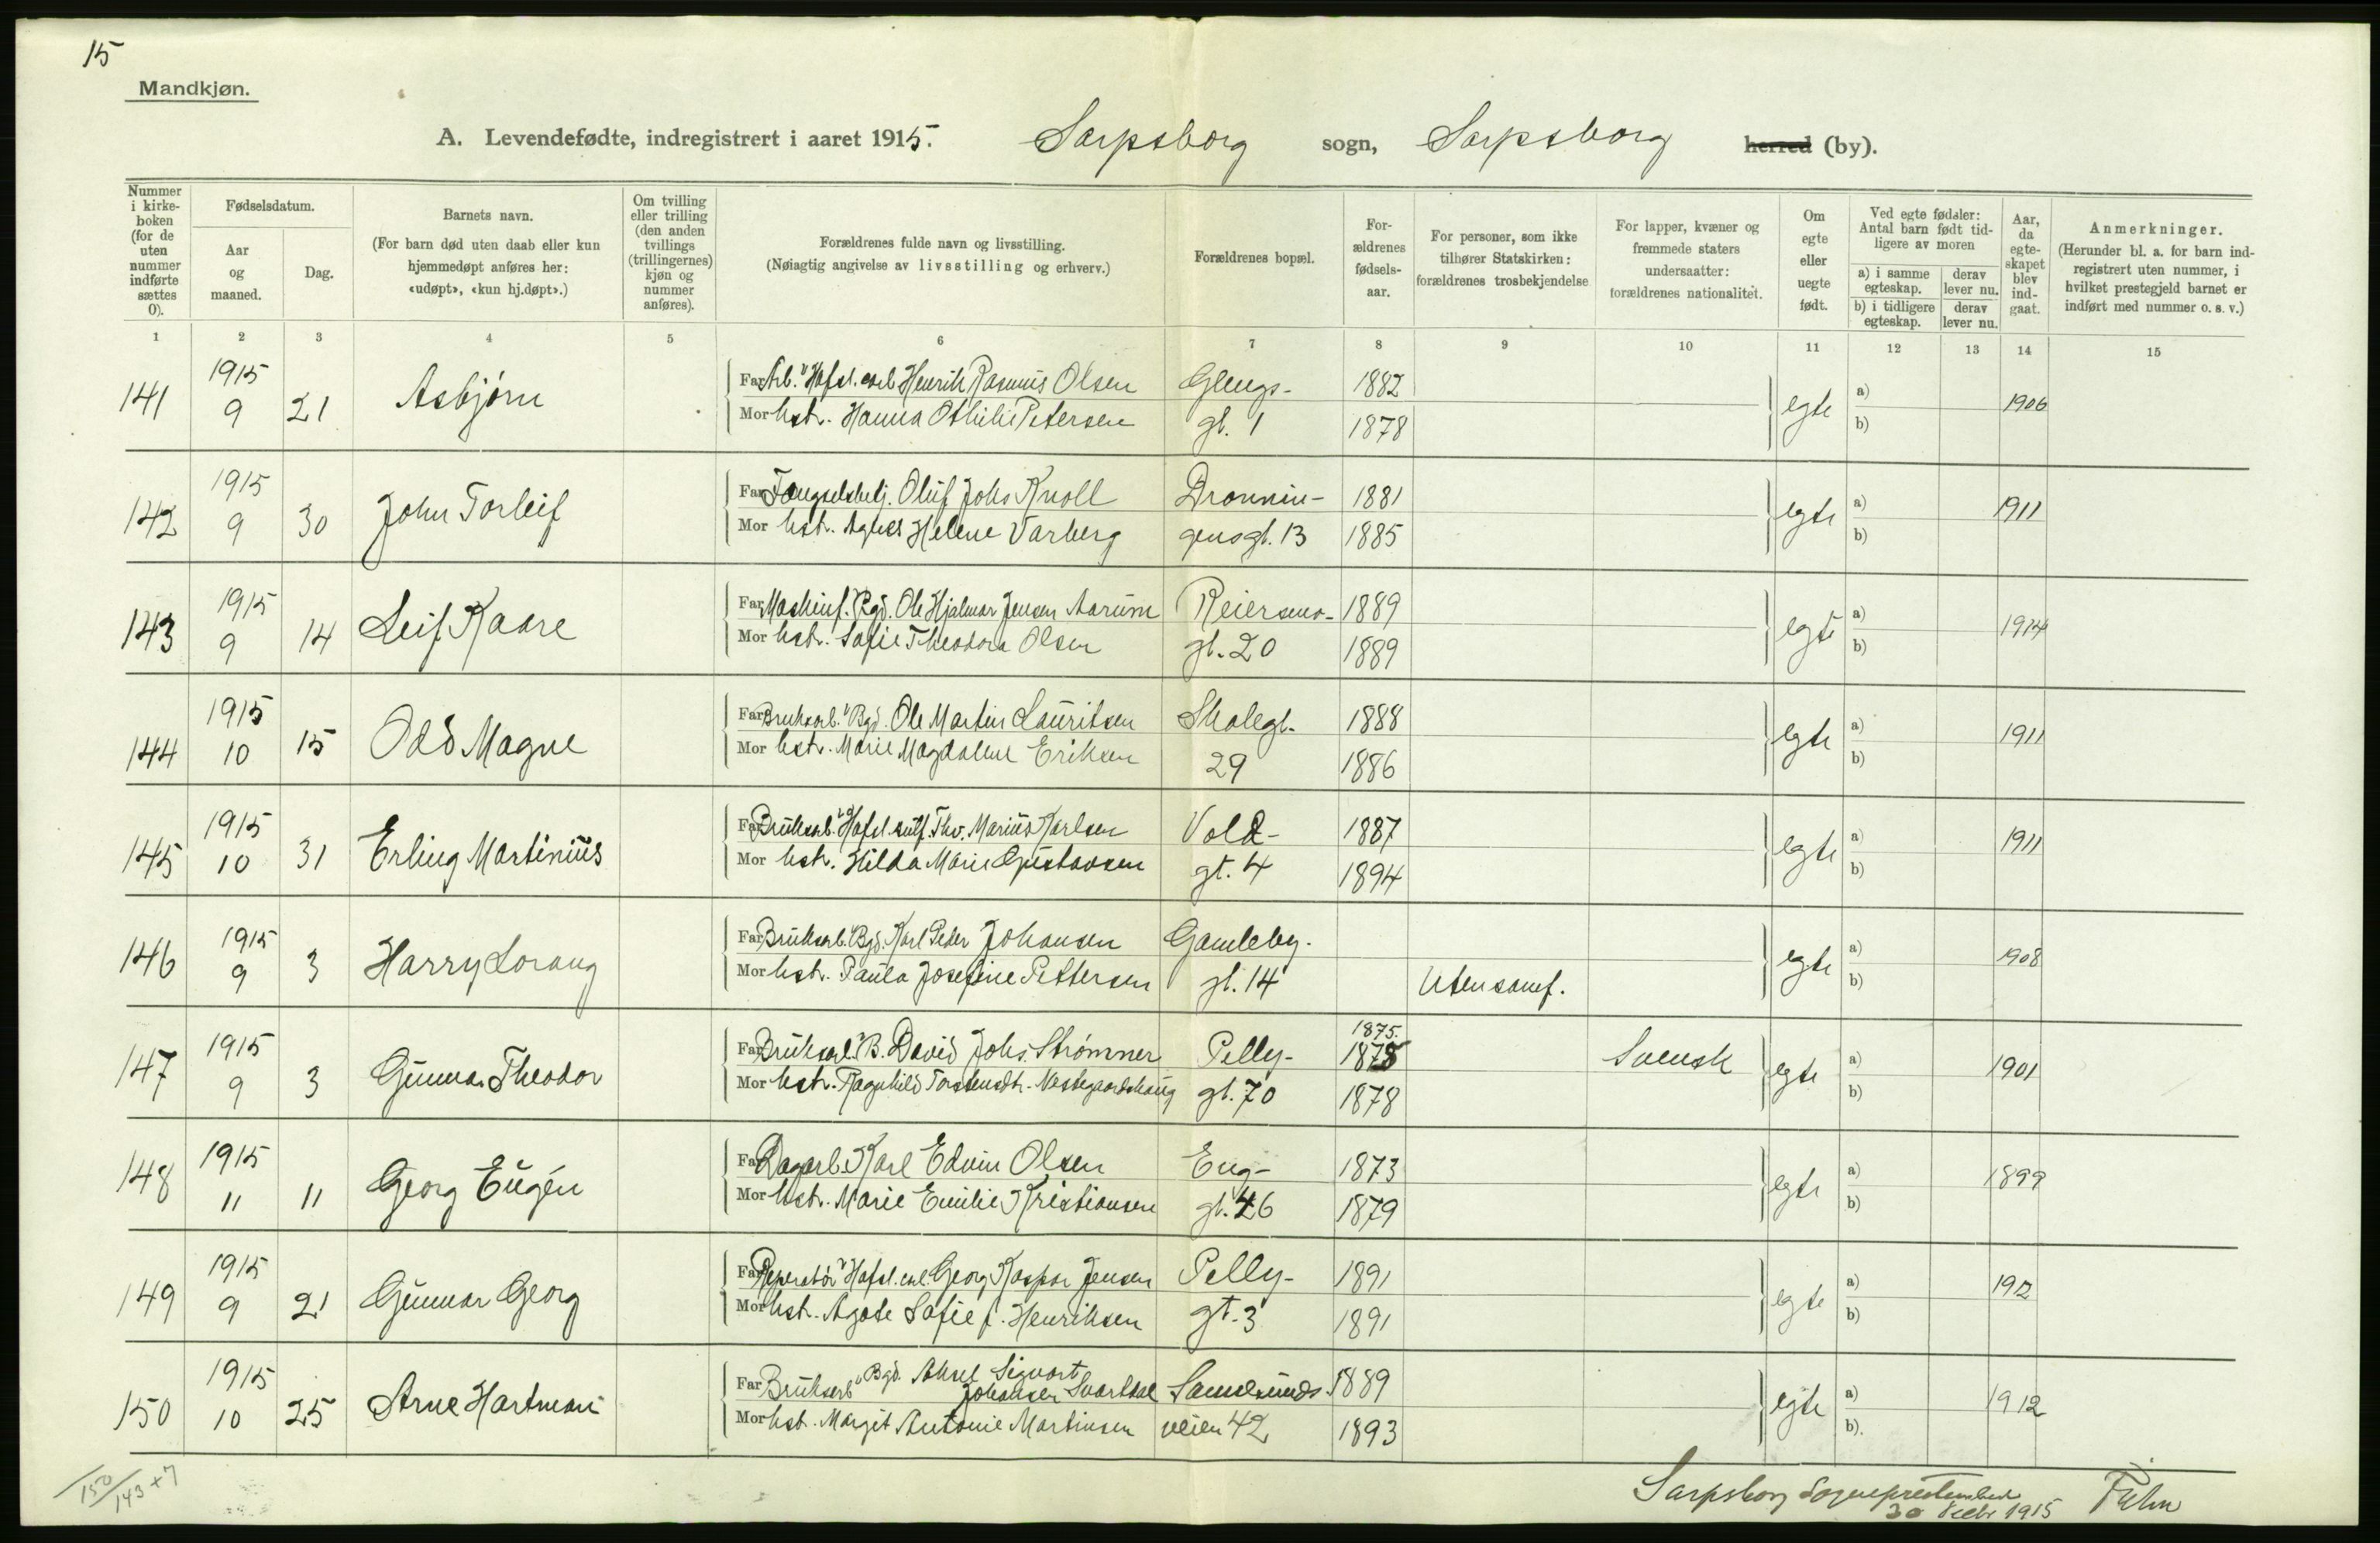 15
Mandkjøn.
A. Levendefødte, indregistrert i aaret 1915. Sarpsborg sogn, Sarpsborg herred (by).
Nummer i kirke-boken (for de uten nummer indførte sættes 0).
Fødselsdatum.
Aar og maaned.
Dag.
Barnets navn.
(For barn død uten daab eller kun hjemmedøpt anføres her: «udøpt», «kun hj.døpt».)
Om tvilling eller trilling (den anden tvillings (trillingernes) kjøn og nummer anføres).
Forældrenes fulde navn og livsstilling.
(Nøiagtig angivelse av livsstilling og erhverv.)
Forældrenes bopæl.
For-ældrenes fødsels-aar.
For personer, som ikke tilhører Statskirken: forældrenes trosbekjendelse
For lapper, kvæner og fremmede staters undersaatter: forældrenes nationalitet.
Om egte eller uegte født.
Ved egte fødsler: Antal barn født tid-ligere av moren
a) i samme egteskap.
derav lever nu.
b) i tidligere egteskap.
derav lever nu.
Aar, da egte-skapet blev ind-gaat.
Anmerkninger.
(Herunder bl. a. for barn ind-registrert uten nummer, i hvilket prestegjeld barnet er indført med nummer o. s. v.)
1 2 3 4 5 6 7 8 9 10 11 12 13 14 15
141 1915 9 21 Asbjørn
Far Arb. v Hafsl. Henrik Rasmus Olsen Glengs- 1882
Mor hstr. Hanna Othilie Petersen gt. 1 1878
egte a) b) 1906
142 1915 9 30 John Torleif
Far Fængselsbetj. Oluf Johs Knoll Dronnin- 1881
Mor hstr. Agnes Helene Varberg gensgt. 13 1885
egte a) b) 1911
143 1915 9 14 Leif Kaare
Far Maskinf. Bgd. Ole Hjalmar Jensen Aarum Reiersens- 1889
Mor hstr. Sofie Theodora Olsen gt. 20 1889
egte a) b) 1914
144 1915 10 15 Odd Magne
Far Bruksarb. v Bgd. Ole Martin Lauritsen Skolegt. 1888
Mor hstr. Marie Magdalene Eriksen 29 1886
egte a) b) 1911
145 1915 10 31 Erling Martinius
Far Bruksarb. v Hafsl. sulf. Thv. Marius Karlsen Vold- 1887
Mor hstr. Hilda Marie Gustavsen gt. 4 1894
egte a) b) 1911
146 1915 9 3 Harry Lorang
Far Bruksarb. v Bgd. Karl Peder Johansen Gamleby-
Mor hstr. Paula Josefine Pettersen gt. 14 Uten samf.
egte a) b) 1908
147 1915 9 3 Gunnar Theodor
Far Bruksarb. v B. David Johs. Strømner Pelly- 1875. 1878 Svensk
Mor hstr. Ragnhild Torstensdtr. Vestegaardshaug gt. 70 1878
egte a) b) 1901
148 1915 11 11 Georg Eugén
Far Dagarb. Karl Edvin Olsen Eng- 1873
Mor hstr. Marie Emilie Kristiansen gt. 46 1879
egte a) b) 1899
149 1915 9 21 Gunnar Georg
Far Reperatør v Hafsl. Georg Kaspar Jensen Pelly- 1891
Mor hstr. Agote Sofie f. Henriksen gt. 3 1891
egte a) b) 1912
150 1915 10 25 Arne Hartman
Far Bruksarb v Bgd. Aksel Sigvart Johansen Svartdal Sandesunds 1889
Mor hstr. Margit Antonie Martinsen veien 42 1893
egte a) b). 1912
150/143+7
Sarpsborg Sogneprestembede
30 Decbr 1915